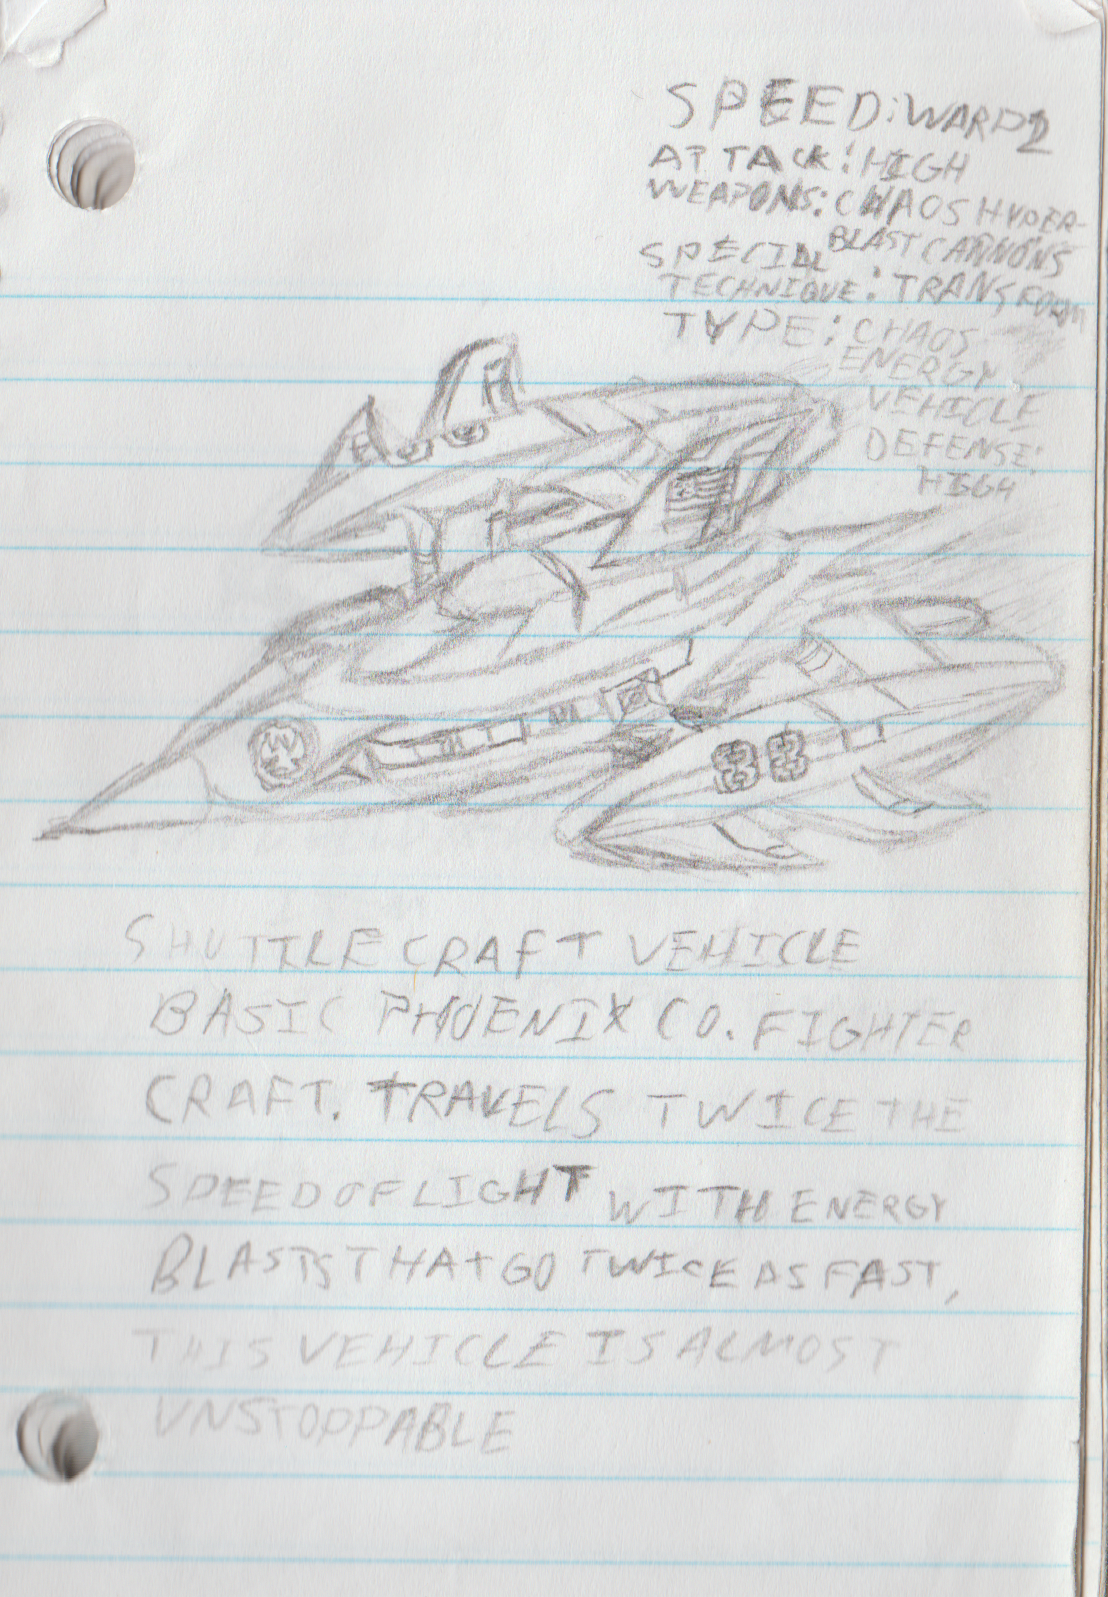 SPEED: WARP 2
ATTACK: HIGH
WEAPONS: CHAOS HYPER-
BLAST CANNONS
SPECIAL
TECHNIQUE: TRANSFORM
TYPE: CHAOS
ENERGY
VEHICLE
DEFENSE:
HIGH
SHUTTLE CRAFT VEHICLE
BASIC PHOENIX CO. FIGHTER
CRAFT. TRAVELS TWICE THE
SPEED OF LIGHT WITH ENERGY
BLASTS THAT GO TWICE AS FAST,
THIS VEHICLE IS ALMOST
UNSTOPPABLE